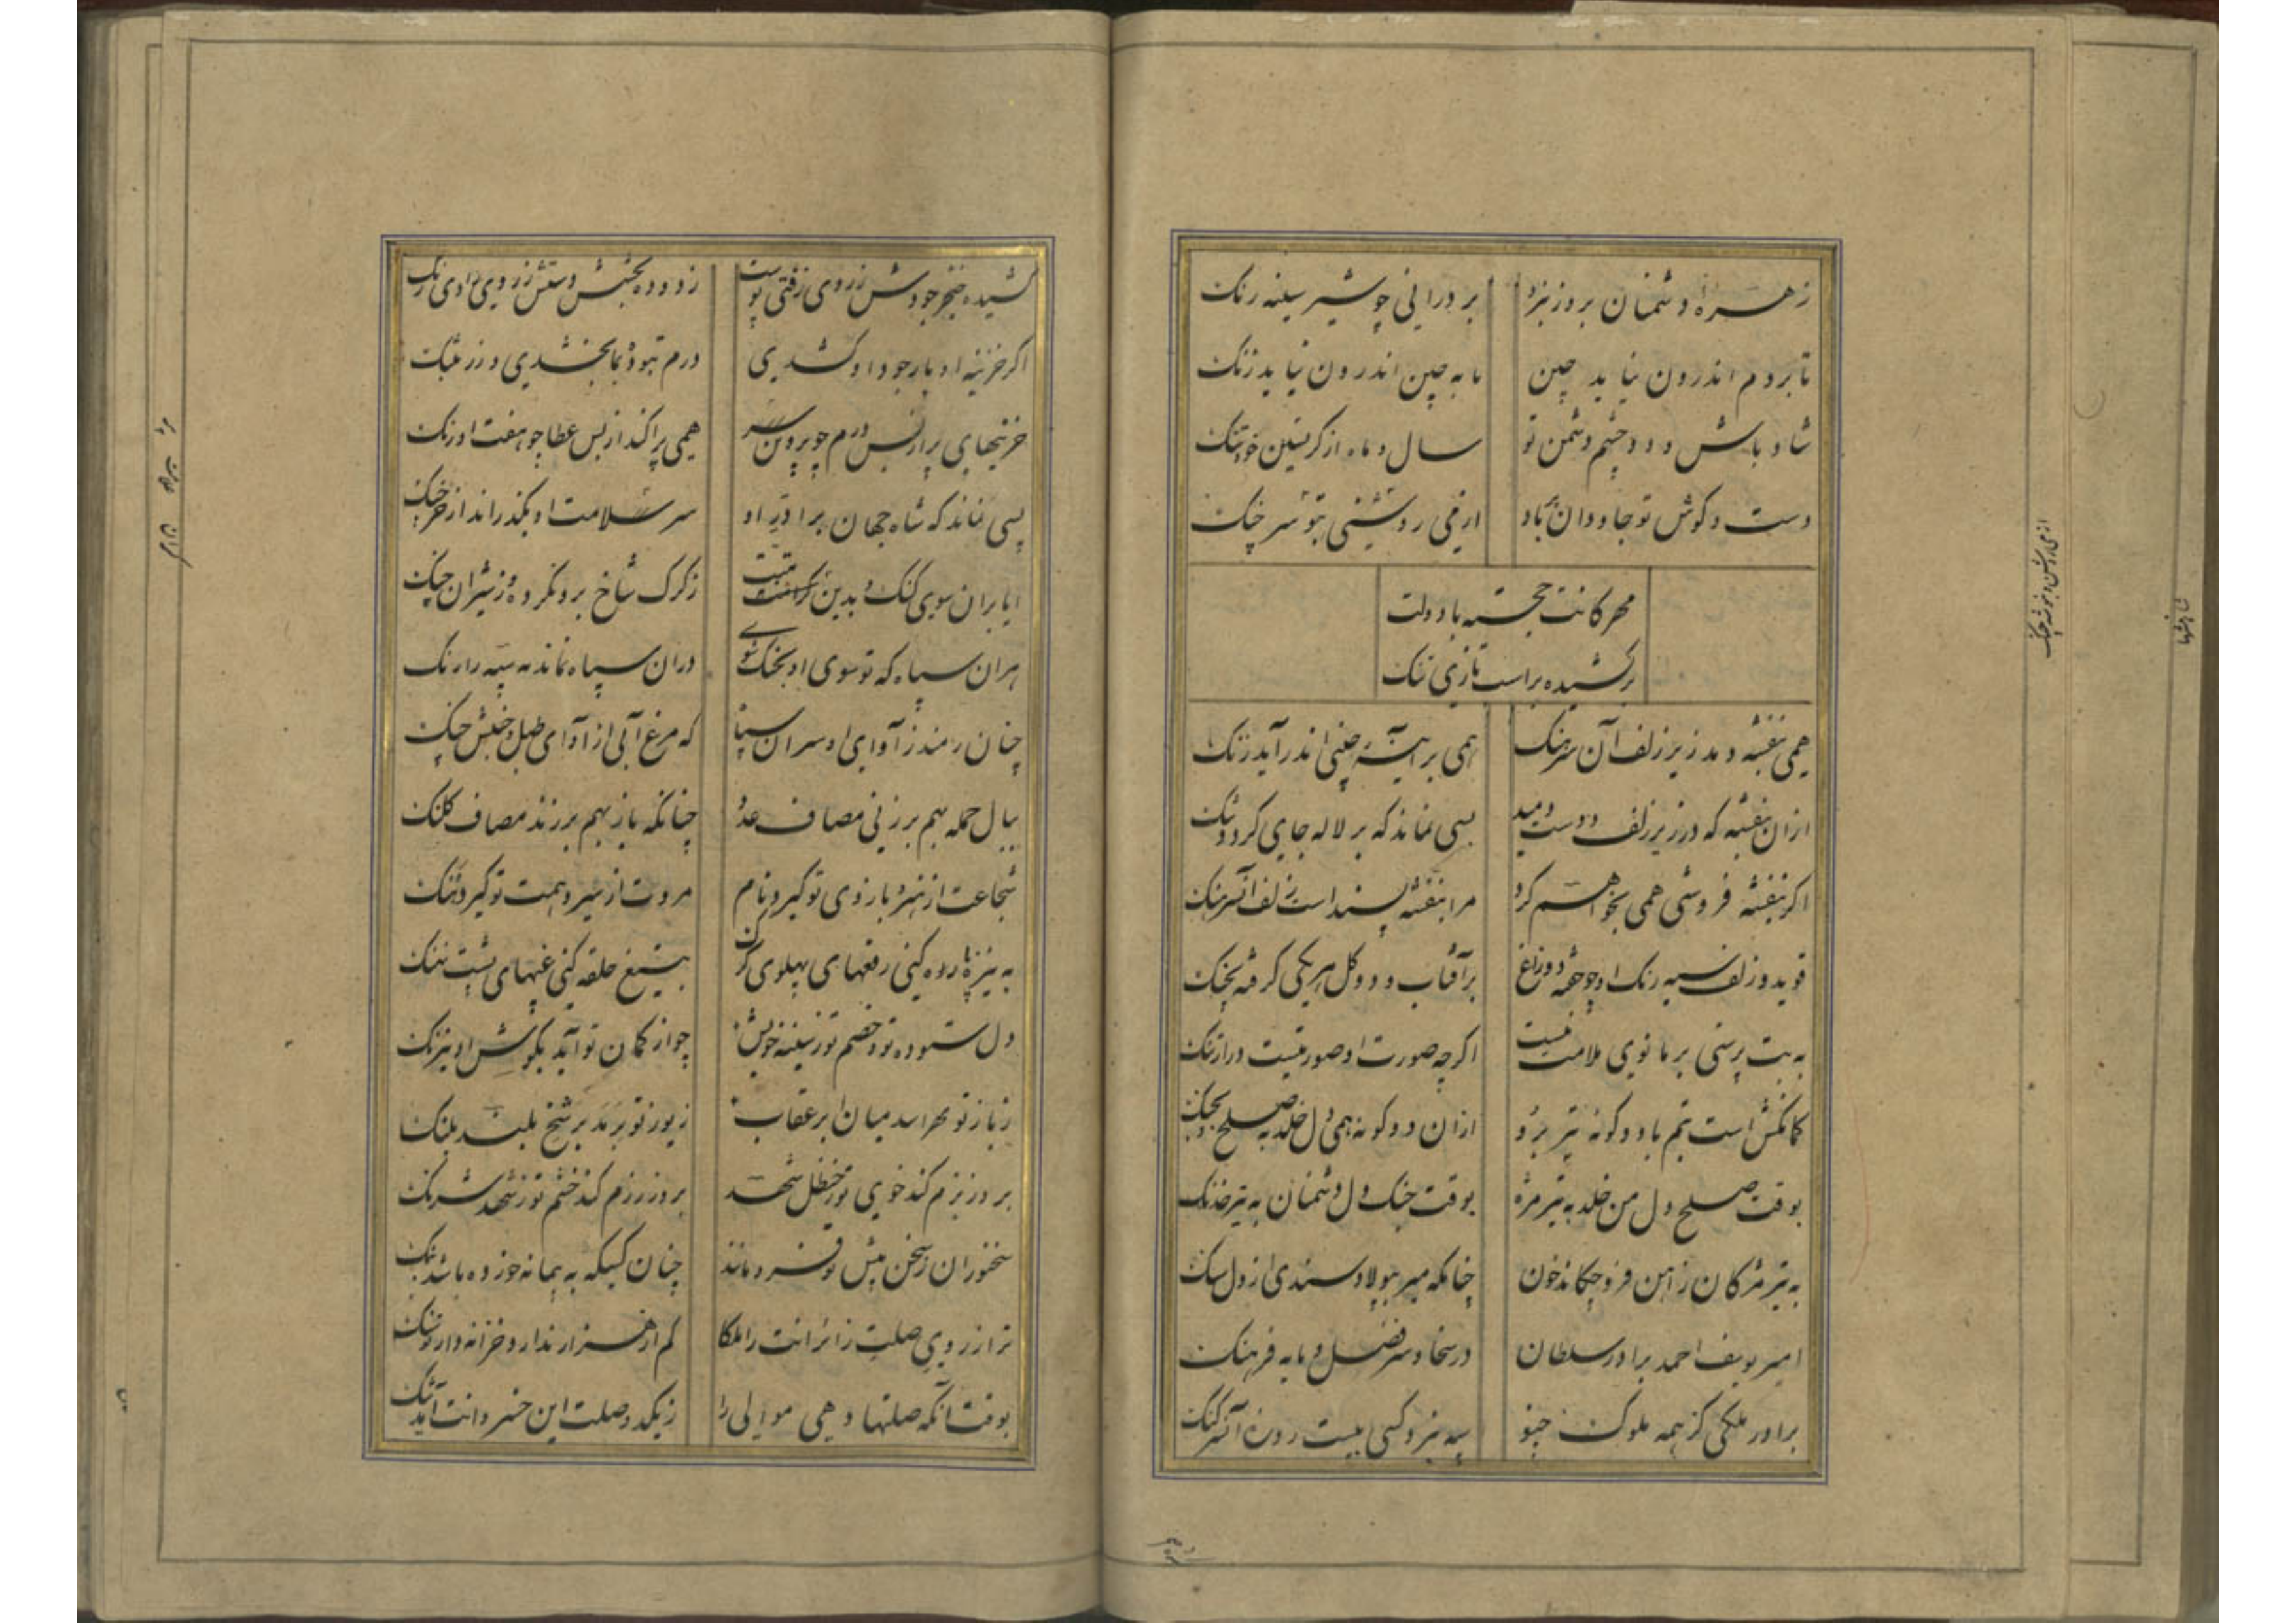 زهره دشمنان بروز نبرد بر درانی چو شیر سینه رنک
تا بروم اندرون نیاید چین تا به چین اندرون نیاید زنک
شاد باش و دو چشم دشمن تو سال و ماه از کرستین خود تنک
دست و کوش تو جاودان باد از می روشنی تو سر چنک
مهرکانت خجسته باد ولت
برکشیده براسب تازی تنک
همی بنفشه دمد زیر زلف آن سرهنک همی بر آینه چینی اندر آید زنک
ازان بنفشه که در زیر زلف دوست دمید بسی نماند که بر لاله جای کردد تنک
اکر بنفشه فروشی همی بخواهم کرد مرا بنفشه پسنداست زلف آن سرهنک
دو زلف سیه رنک او چو جفته دو زاغ بر آفتاب و دو کل هر یکی کرفته بچنک
به بت پرستی بر مانوی ملامت نیست اکر چه صورت او صورتیست در ارتنک
کمانکش است بتم با دو کونه تیر بر او ازان دو کونه همی دل خلد به صلح و بجنک
بوقت صلح دل من خلد به تیر مژه بوقت جنک دل دشمنان به تیر خدنک
به تیر مژکان ز آهن فرو چکاند خون چنانکه میر بپولاد سندی از دل سنک
امیر یوسف احمد برادر سلطان در سخا و سر فضل و مایه فرهنک
برادر ملکی کز همه ملوک چنو سیه نبرد کسی بیست روزه آن سر کنک
کشیده خنجر جودش ز روی زفتی پوست زدوده بخشش دستش ز روی رادی زنک
اکر خزینه او بار جود او کشدی درم نبوذ بما بخشدی و زر بتنک
خزینهای پر از بس درم چو پروین سر همی پراکند از بس عطا چو هفت اورنک
بسی نماند که شاه جهان برادر او سر سلامت او بکذراند از خرچنک
ایا بران سوی کنک و بدین کرانت زکرک شاخ برون کرده و ز شیران چنک
هران سپاه که تو سوی او بجنک شوی دران سپاه نماند به سپه رارنک
چنان رمند ز آوای او سران سپاه که مرغ آبی از آوای طبل و جنبش چنک
بیال حمله بهم بر زنی مصاف عدو چنانکه باز بهم بر زند مصاف کلنک
شجاعت از هنر و بازوی تو کیرد نام مروت از سیر و همت تو کیرد ننک
به نیزه پاره کنی رقعهای پهلوی کرک بتیغ حلقه کنی غیبهای پشت ننک
دل ستوده تو و خصم تو ز سینه خویش چو از کمان تو آید بکوش او تیرنک
ز باز تو بهراسد میان ابر عقاب ز یوز تو برمد بر شخ بلند پلنک
بروز بزم کند خوی تو ز حنظل شهد بروز رزم کند خشم تو ز شهد شرنک
سخنوران ز سخن پیش تو فرو مانند چنان کسیکه به پیمانه خورده باشد بنک
ترا ز روی صلت زائرانت را ملکا کم از هزار ندارد خزانه دار تو تنک
بوقت آنکه صلتها دهی موالی را ز یکد وصلت این خسروانت آید تنک